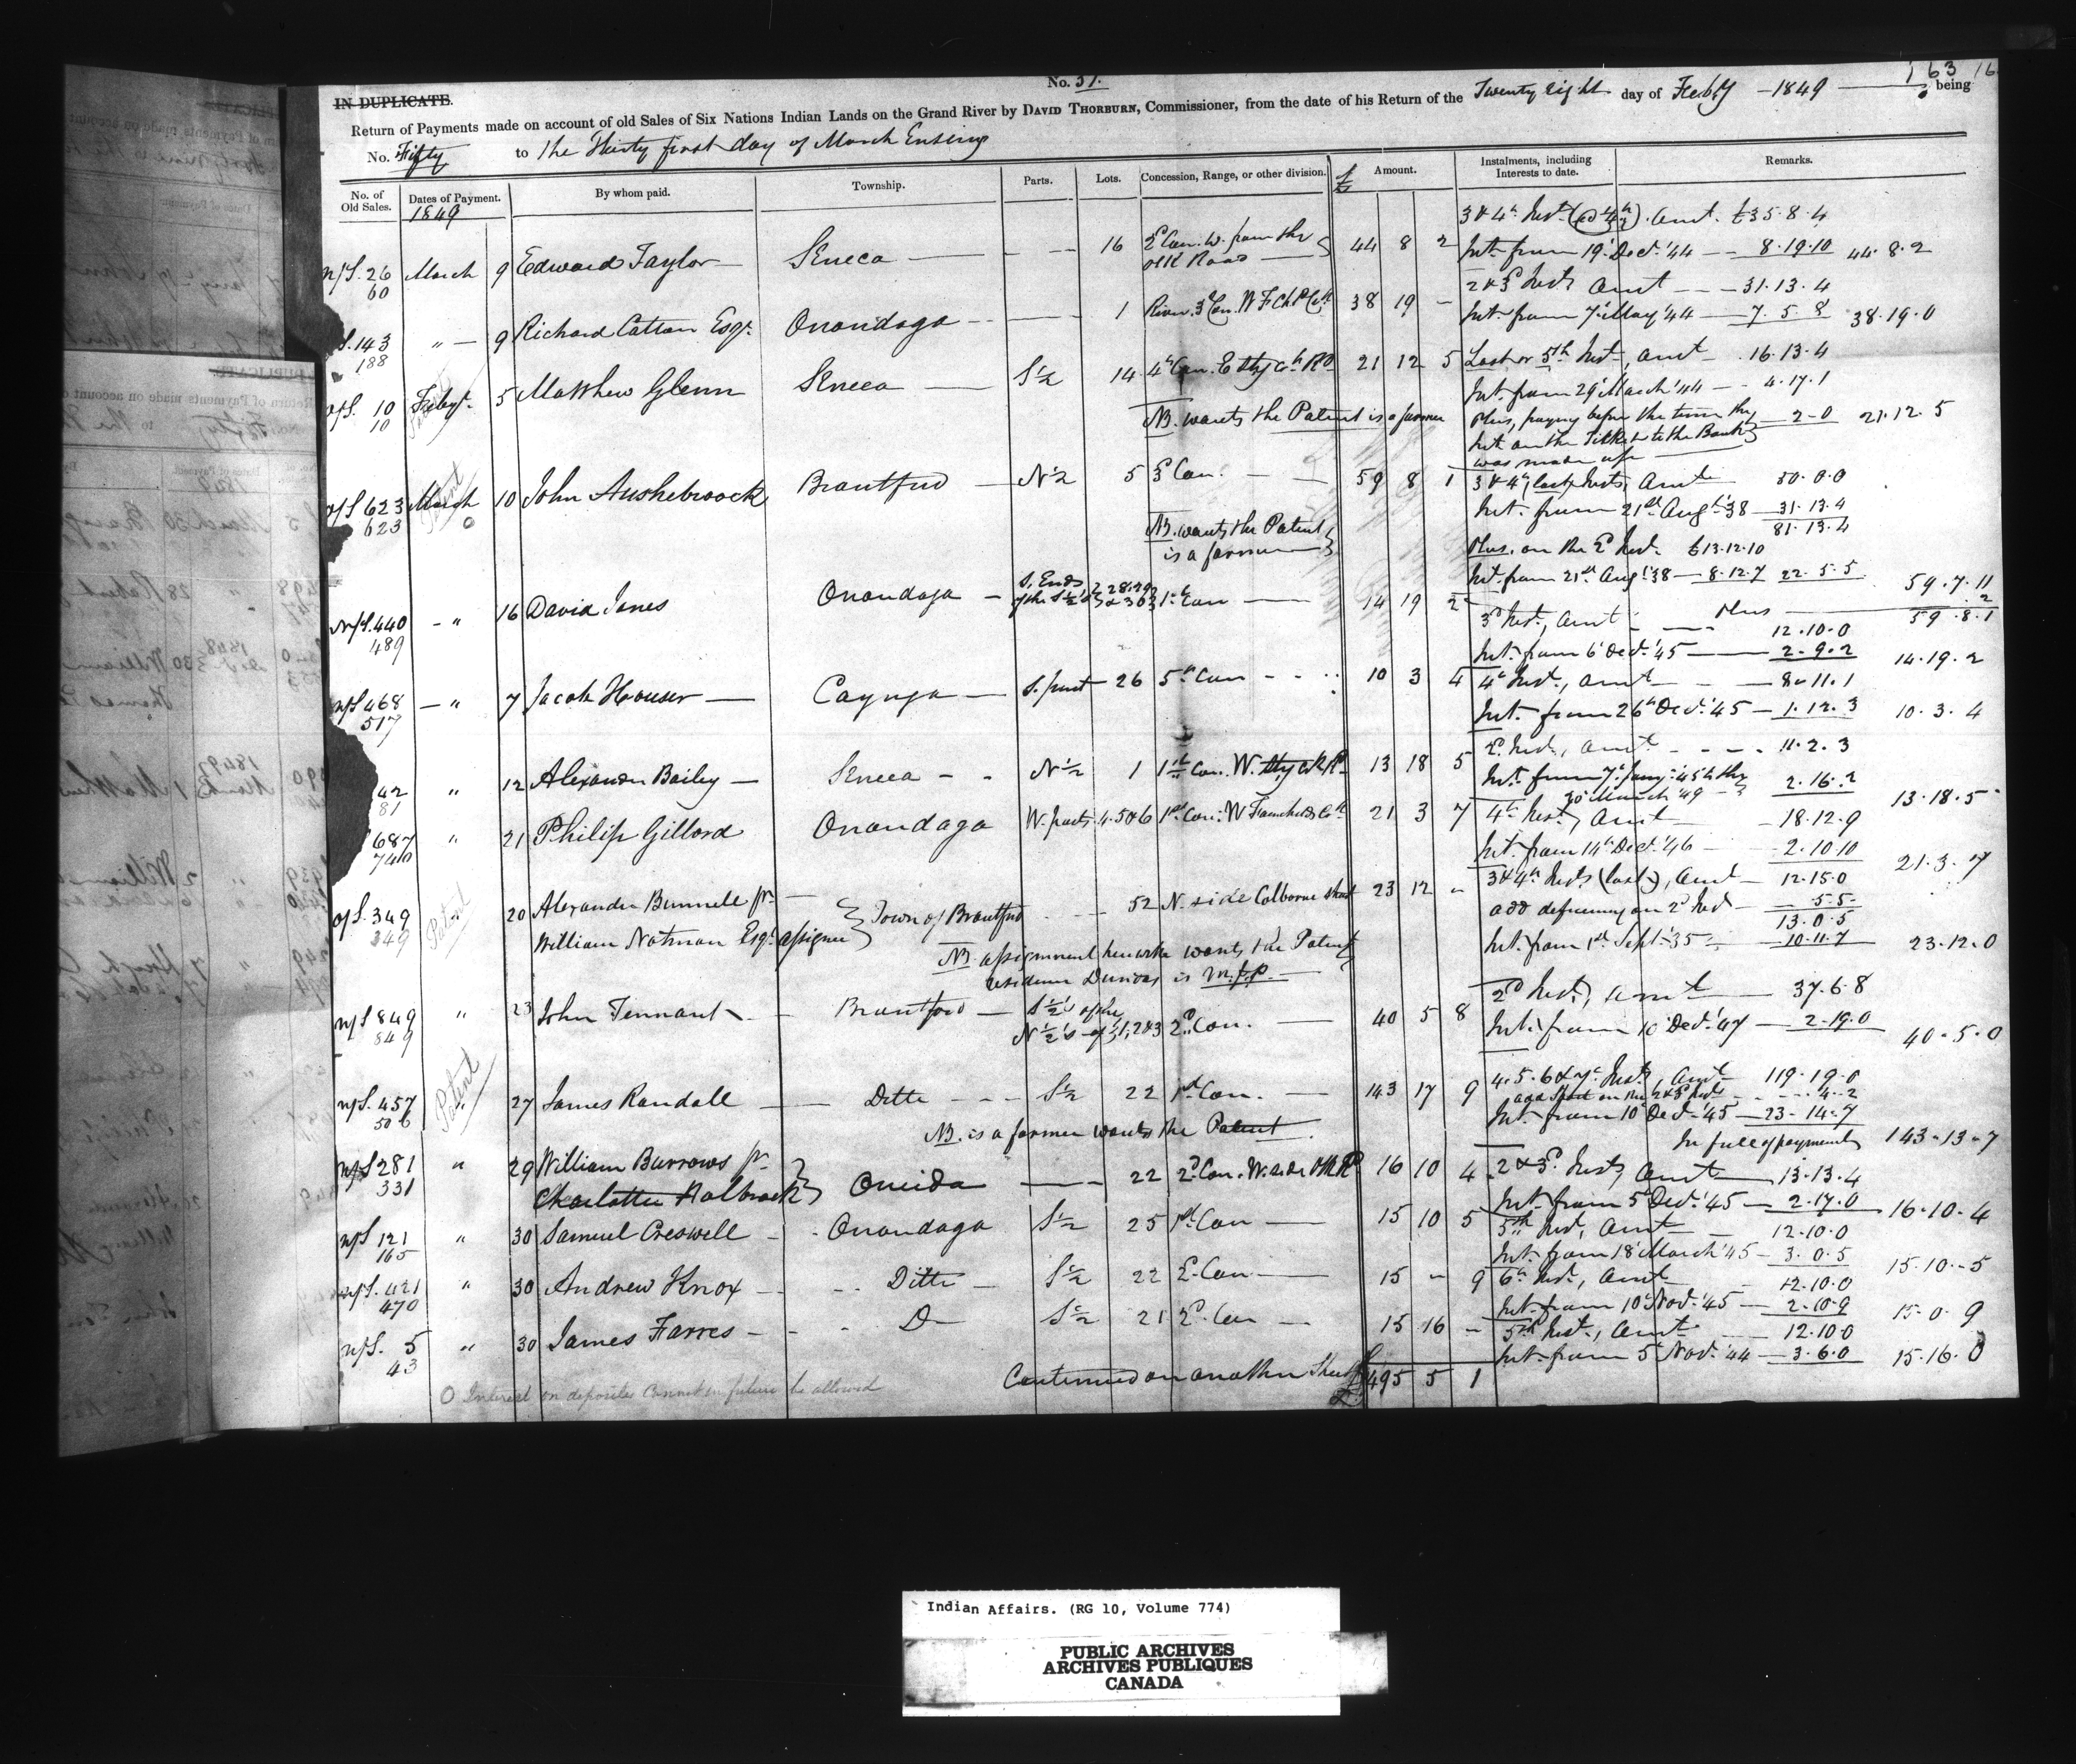 163 16
No. 31.
IN DUPLICATE.
Return of Payments made on account of old Sales of Six Nations Indian Lands on the Grand River by DAVID THORBURN, Commissioner, from the date of his Return of the Twenty eight day of Feb'y - 1849 being
No. Fifty to the Thirty first day of March Ensuing
No. of Old Sales. Dates of Payment. By whom paid. Township. Parts. Lots. Concession, Range, or other division. Amount. Instalments, including Interests to date. Remarks.
1849
3 & 4th Inst. Amt. £35.8.4
n/S. 26 March 9 Edward Taylor Seneca 16 2d Con. W. from the 44 8 2 Int. from 19 Dec. '44 8.19.10 44.8.2
60 old Road
2 & 3d Insts Amt 31.13.4
S. 143 " 9 Richard Catton Esqr. Onondaga 1 River 3d Con. 38 19 - Int. from 7 May '44 7.5.8 38.19.0
188
o/S. 10 Feby. 5 Matthew Glenn Seneca S½ 14 4th Con. E 21 12 5 Last or 5th Inst, Amt 16.13.4
10 Int. from 29 March '44 4.17.1
NB. wants the Patent is a farmer Plus, paying before the time the 2-0 21.12.5
Int on the Ticket to the Bank
was made up
o/S 623 March 10 John Aushebroock Brantford N½ 5 3d Con. 59 8 1 3 & 4th (last) Insts, Amt 50.0.0
623 Patent Int. from 21st Aug. '38 31.13.4
NB. wants the Patent 81.13.4
is a farmer Plus. on the 2d Inst. £13.12.10
Int. from 21st Aug '38 8.12.7 22.5.5 59.7.11
Plus 2
59.8.1
n/S. 440 " 16 David Jones Onondaga S. Ends of the S½'s 28, 29 & 30 1st Con 14 19 2 3d Inst, Amt 12.10.0
489 Int. from 6 Dec. '45 2.9.2 14.19.2
n/S 468 " 7 Jacob Houser Cayuga S. part 26 5th Con 10 3 4 4th Inst, Amt 8.11.1
517 Int. from 26th Dec. '45 1.12.3 10.3.4
42 " 12 Alexander Bailey Seneca N½ 1 1st Con. W. 13 18 5 2d Inst, Amt 11.2.3
81 Int. from 7 Jany. '45 to the 2.16.2
30 March '49 13.18.5
687 " 21 Philip Gillard Onondaga W. parts 4.5&6 1st Con. W 21 3 7 4th Inst, Amt 18.12.9
740 Int. from 14th Dec. '46 2.10.10 21.3.7
o/S. 349 Patent 20 Alexander Bunnell pr. Town of Brantford 52 N. side Colborne Street 23 12 - 3 & 4th Insts (last), Amt 12.15.0
349 William Notman Esqr. assignee add deficiency on 2d Inst 5.5
13.0.5
NB assignment herewith wants the Patent Int. from 1st Sept. '35 10.11.7 23.12.0
residence Dundas is M.P.P.
n/S 849 " 23 John Tennant Brantford S½'s of the 40 5 8 2d Inst, Amt 37.6.8
849 N½'s of 1, 2 & 3 2d Con. Int. from 10 Dec. '47 2.19.0 40.5.0
n/S. 457 Patent 27 James Randall Ditto S½ 22 1st Con. 143 17 9 4.5.6 & 7th Insts, Amt 119.19.0
506 add short on the 2 & 3 Insts 4.2
Int. from 10 Dec. '45 23.14.7
NB. is a farmer wants the Patent In full of payments 143.13.7
n/S 281 " 29 William Burrows pr. Oneida 22 2d Con. W. side 16 10 4 2 & 3d. Insts, Amt 13.13.4
331 Charlotte Holbrook Int. from 5 Dec. '45 2.17.0 16.10.4
n/S 121 " 30 Samuel Creswell Onondaga S½ 25 1st Con 15 10 5 5th Inst, Amt 12.10.0
165 Int. from 18 March '45 3.0.5 15.10.5
n/S. 421 " 30 Andrew Knox Ditto S½ 22 2d Con 15 - 9 6th Inst, Amt 12.10.0
470 Int. from 10 Nov. '45 2.10.9 15.0.9
n/S. 5 " 30 James Farres Do S½ 21 2d Con 15 16 - 5th Inst., Amt 12.10.0
43 Int. from 5 Nov. '44 3.6.0 15.16.0
Continued on another Sheet £495 5 1
O Interest on deposits cannot in future be allowed
Indian Affairs. (RG 10, Volume 774)
PUBLIC ARCHIVES
ARCHIVES PUBLIQUES
CANADA